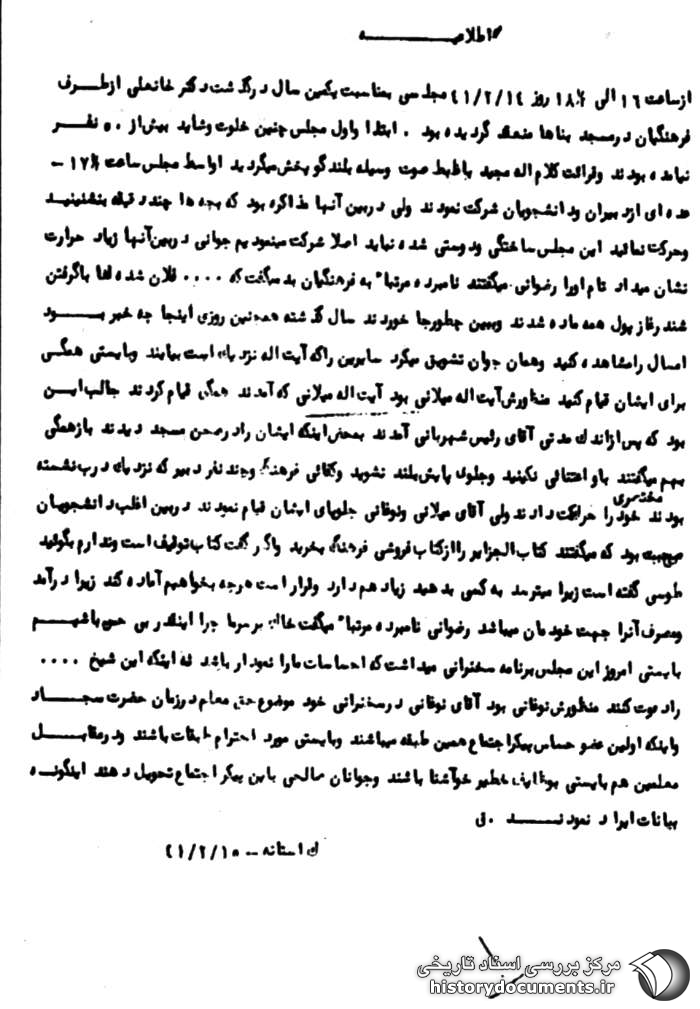 اطلاعیه
از ساعت ۱۶ الی ۱۸/۴۰ روز ۴۱/۲/۱۴ مجلسی بمناسبت یکمین سال درگذشت دکتر خانعلی ازطرف
فرهنگیان درمسجد بناها منعقد گردیده بود . ابتدا واول مجلس چنین خلوت وشاید بیش از ۵۰ نفر
نیامده بودند وقرائت کلام اله مجید باضبط صوت وسیله بلندگو پخش میگردید اواسط مجلس ساعت ۱۷/۴۰ -
عده ای ازدبیران ودانشجویان شرکت نمودند ولی دربین آنها مذاکره بود که بچه ها چند دقیقه بنشنینید
وحرکت نمائید این مجلس ساختگی ودوستی شده نباید اصلا شرکت مینمودیم جوانی دربین آنها زیاد حرارت
نشان میداد نام اورا رضوانی میگفتند نامبرده مرتبا" به فرهنگیان بد میگفت که .... فلان شده لها باگرفتن
شندرغاز پول همه ماده شدند وببین چطورجا خوردند سال گذشته همچنین روزی اینجا چه خبر بود
امسال رامشاهده کنید وهمان جوان تشویق میکرد سایرین راکه آیت اله نزدیک است بیایند وبایستی همگی
برای ایشان قیام کنید منظورش آیت اله میلانی بود آیت اله میلانی که آمدند همگی قیام کردند جالب این
بود که پس ازاندک مدتی آقای رئیس شهربانی آمدند بمحض اینکه ایشان رادرصحن مسجد دیدند بازهمگی
بهم میگفتند باو اعتنائی نکینید وجلوی پایش بلند نشوید وکفائی فرهنگ وچند نفر دبیر که نزدیک درب نشسته
بودند خود را مختصری حرکت دادند ولی آقای میلانی ونوقانی جلوپای ایشان قیام نمودند دربین اغلب دانشجویان
صحبت بود که میگفتند کتاب الجزایر را ازکتاب فروشی فرهنگ بخرید واگر گفت کتاب توقیف است وندارم بگوئید
طوسی گفته است زیرا میترسد به کسی بدهید زیاد هم دارد وقرار است هرچه بخواهیم آماده کند زیرا درآمد
ومصرف آنرا جهت خودمان میباشد رضوانی نامبرده مرتبا" میگفت خاک برسرما چرا اینقدر بی حس باشیم
بایستی امروز این مجلس برنامه سخنرانی میداشت که احساسات مارا نمودار باشد نه اینکه این شیخ ....
رادعوت کنند منظورش نوقانی بود آقای نوقانی درسخنرانی خود موضوع حق معلم درزمان حضرت سجاد
واینکه اولین عضو حساس پیکراجتماع همین طبقه میباشند وبایستی مورد احترام طبقات باشند ودرمقابل
معلمین هم بایستی بوظایف خطیر خوآشنا باشند وجوانان صالحی باین پیکر اجتماع تحویل دهند اینگونه
بیانات ایراد نمودند . ق
ک آستانه - ۴۱/۲/۱۵
مرکز بررسی اسناد تاریخی
historydocuments.ir